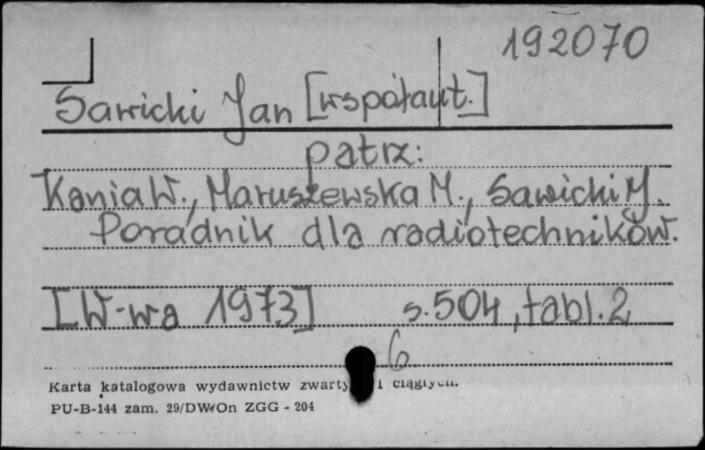 192070
Sawicki Jan [współaut.]
patrz:
Kania W., Maruszewska M., Sawicki J.
Poradnik dla radiotechników.
[W-wa 1973] s. 504, tabl. 2
6
Karta katalogowa wydawnictw i ciągłych.
PU-B-144 zam. 29/DW/On ZGG - 204